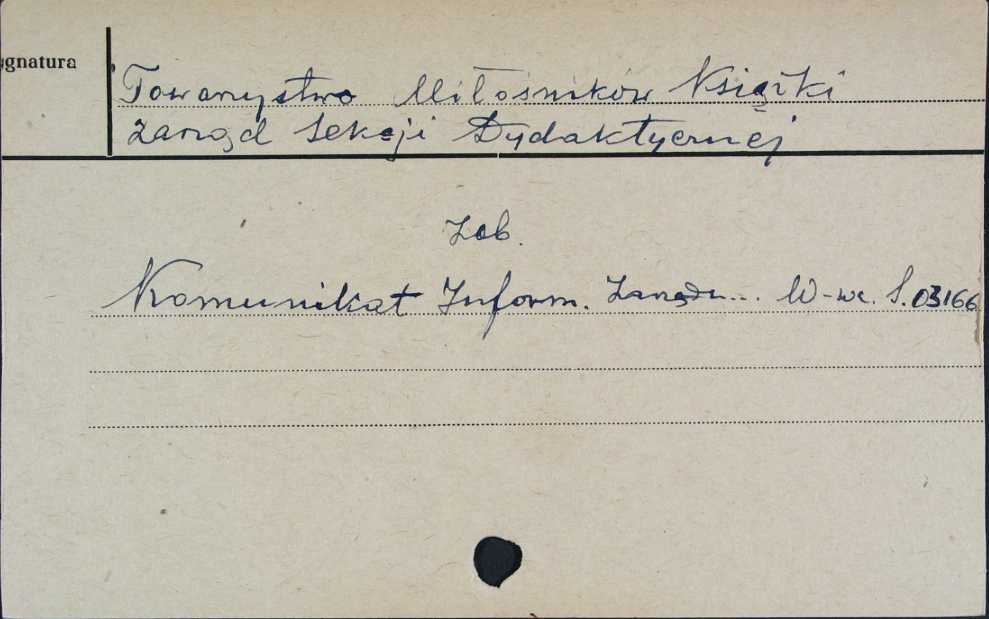 ygnatura
Towarzystwo Miłośników Książki
Zarząd Sekcji Dydaktycznej
Zob.
Komunikat Inform. Zarządu... W-wa. S.03166